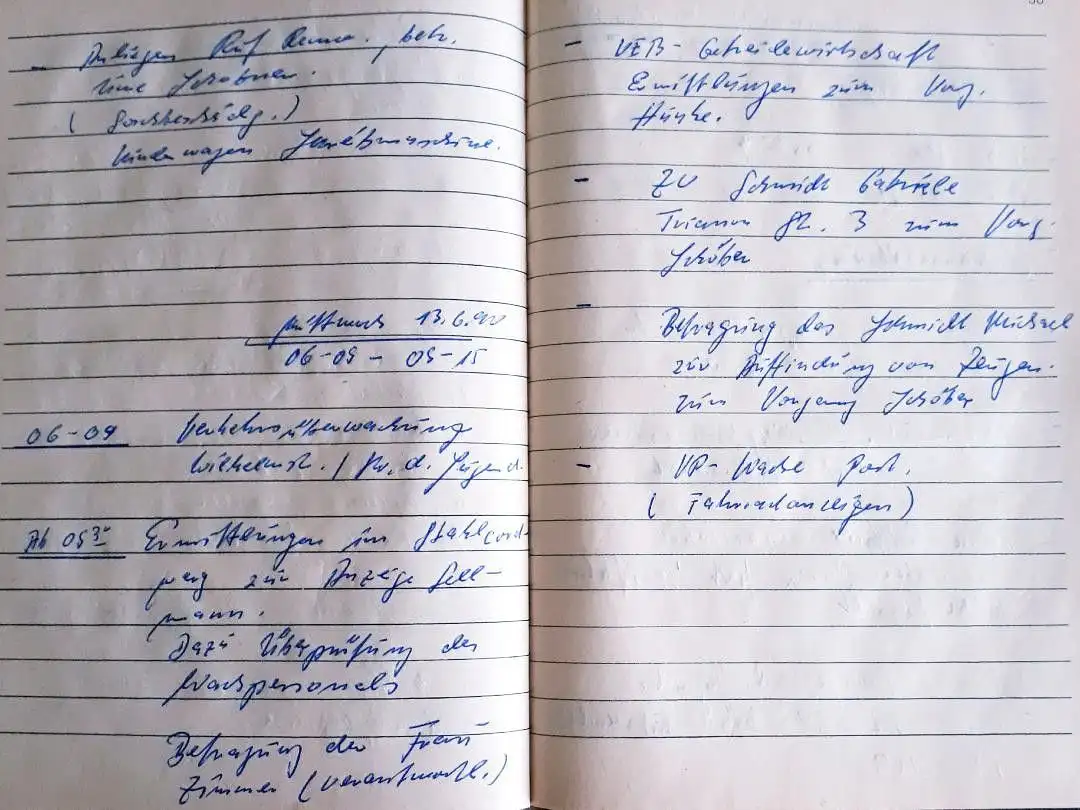 - Anliegen Ruf Renna., betr.
Schreibmaschine.
Kinderwagen
Mittwoch 13.6.90
06-09 - 09-15
06-09 Verkehrsüberwachung
Wilhelmstr. / Pl. d. Jugend.
Ab 09 30 Ermittlungen im Stahlcord-
werk zur Anzeige Sell-
mann.
Dazu Überprüfung des
Wachpersonals
Befragung der Frau
Zimmer (verantwortl.)
- VEB-Getreidewirtschaft
Ermittlungen zum Vorg.
- ZV Schmidt Gabriele
Trianon Str. 3 zum Vorg.
Schöber
- Befragung des Schmidt Michael
zur Auffindung von Zeugen.
zum Vorgang Schöber
- VP-Wache Post.
(Fahrradanzeigen)